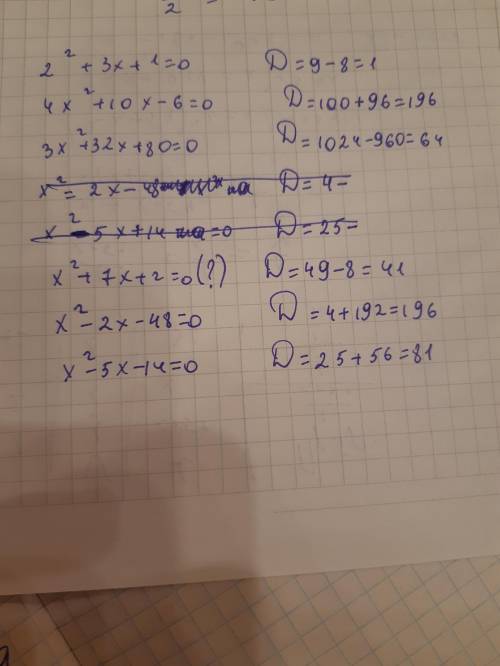 2² + 3x + 1 = 0 D = 9 - 8 = 1
4x² + 10x - 6 = 0 D = 100 + 96 = 196
3x² + 32x + 80 = 0 D = 1024 - 960 = 64
x² = 2x - 48 D = 4 -
x² - 5x + 14 = 0 D = 25 -
x² + 7x + 2 = 0 (?) D = 49 - 8 = 41
x² - 2x - 48 = 0 D = 4 + 192 = 196
x² - 5x - 14 = 0 D = 25 + 56 = 81